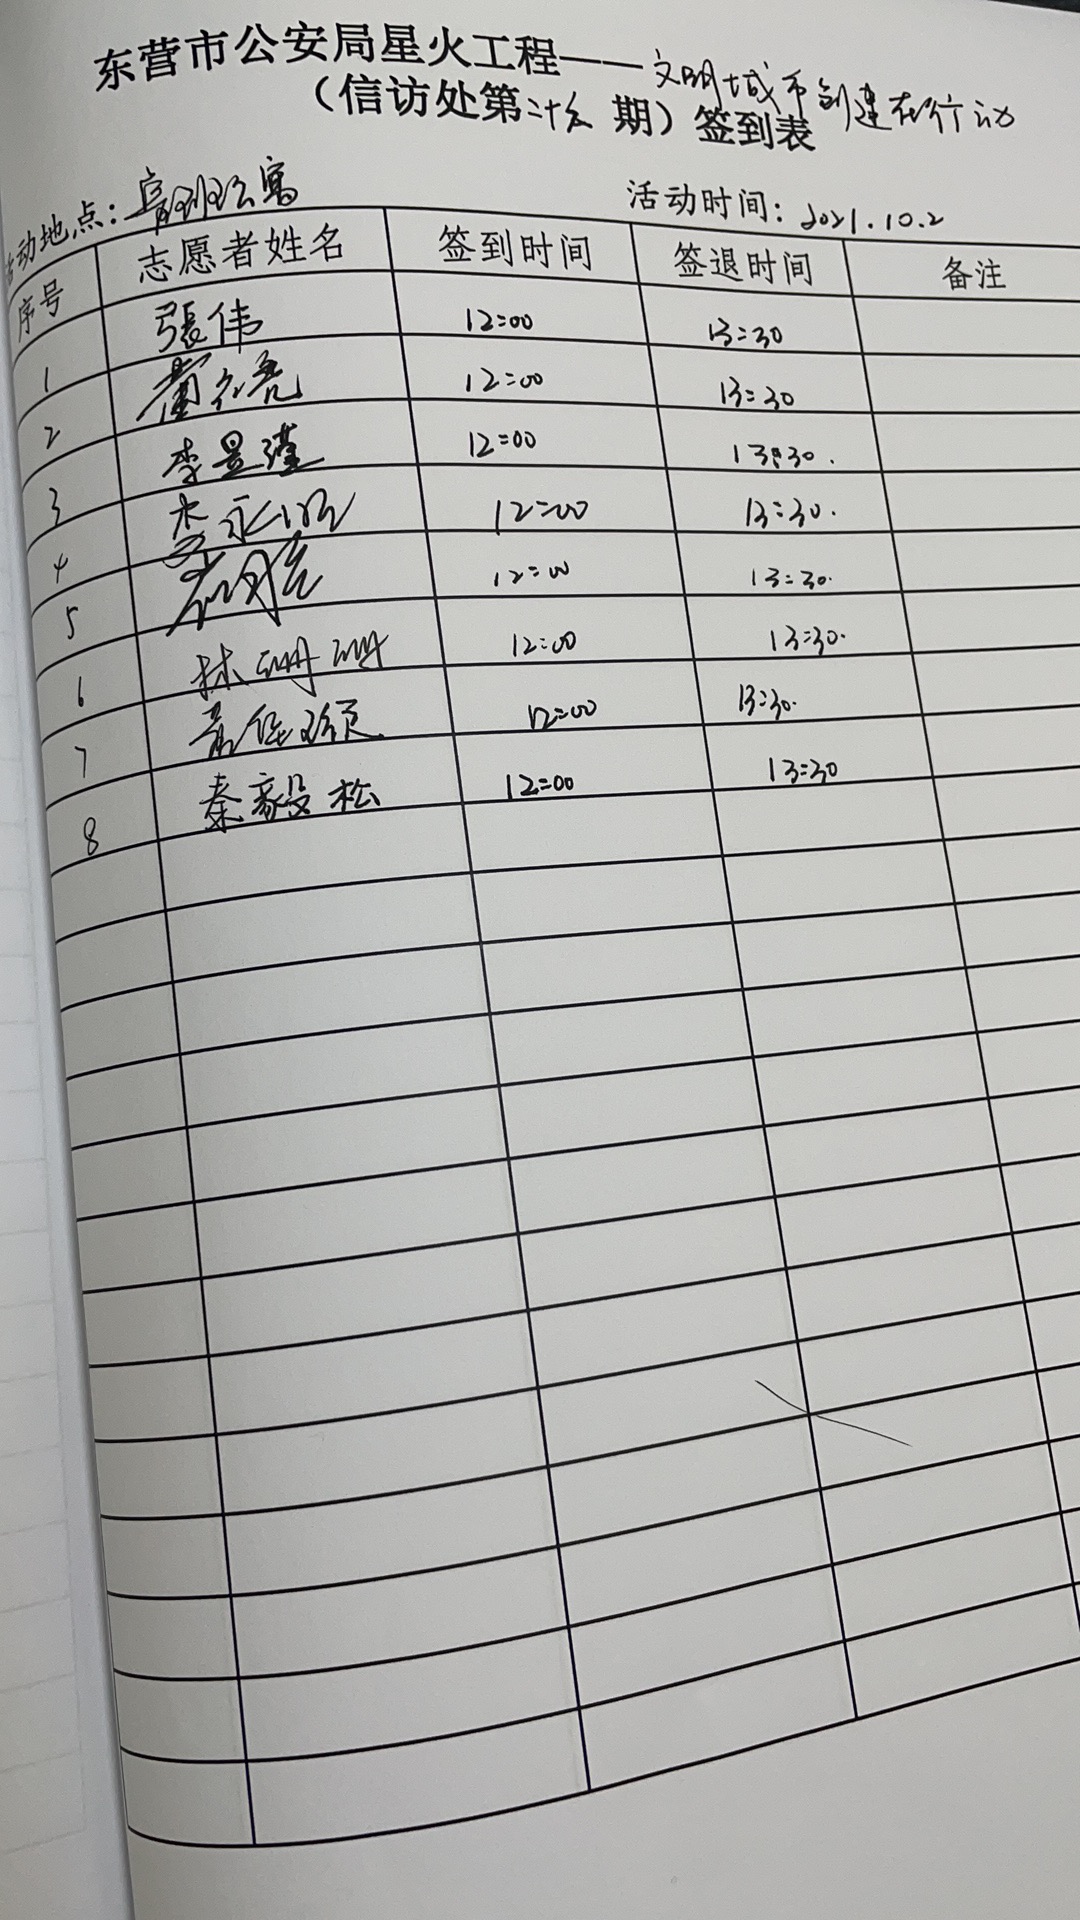 东营市公安局星火工程——文明城市创建在行动
（信访处第二十 期）签到表
活动地点： 公寓
活动时间：2021.10.2
序号 志愿者姓名 签到时间 签退时间 备注
1 張伟 12:00 13:30
2 12:00 13:30
3 李昱瑾 12:00 13:30.
4 李永明 12:00 13:30.
5 12:00 13:30.
6 林珊珊 12:00 13:30.
7 12:00 13:30.
8 秦毅松 12:00 13:30